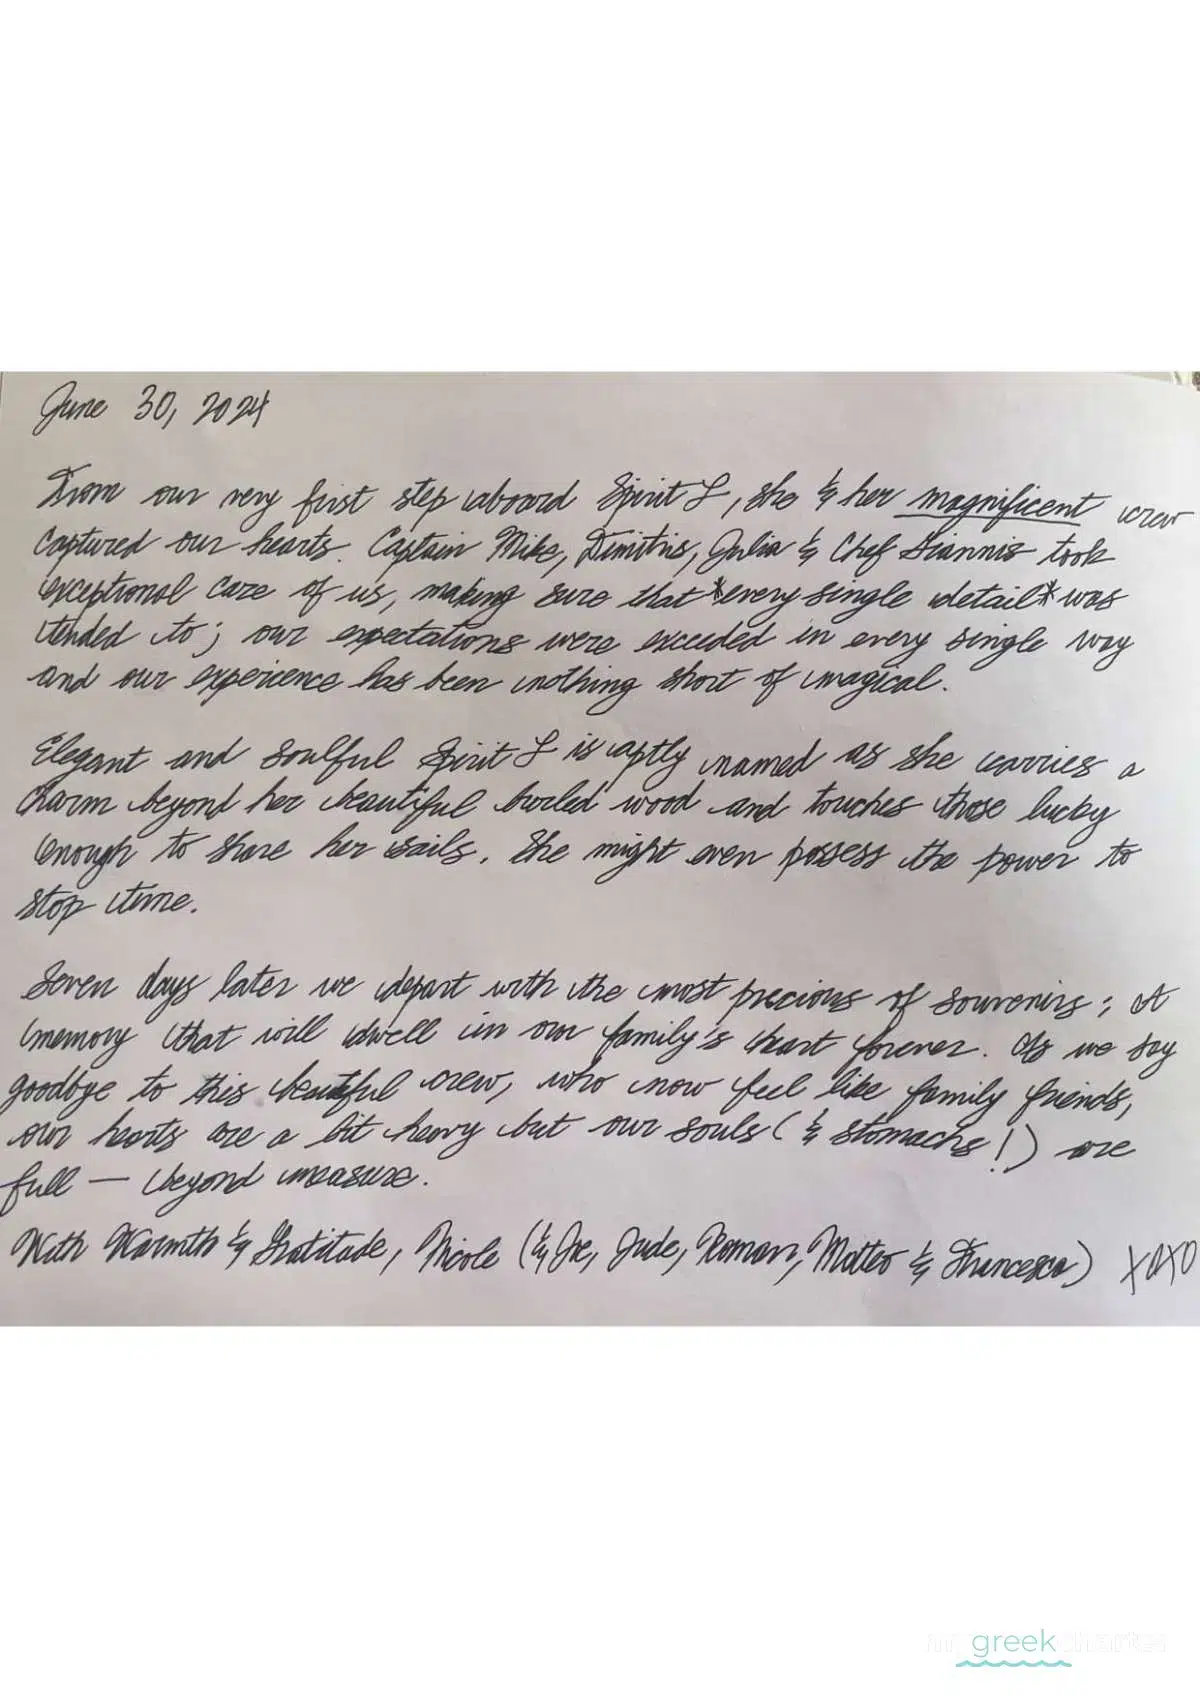 June 30, 2024
From our very first step aboard Spirit L, she & her magnificent crew
captured our hearts. Captain Mike, Dimitris, Julia & Chef Giannis took
exceptional care of us, making sure that *every single detail* was
tended to; our expectations were exceeded in every single way
and our experience has been nothing short of magical.
Elegant and soulful Spirit L is aptly named as she carries a
charm beyond her beautiful burled wood and touches those lucky
enough to share her sails. She might even possess the power to
stop time.
Seven days later we depart with the most precious of souvenirs; A
memory that will dwell in our family's heart forever. As we say
goodbye to this beautiful crew, who now feel like family friends,
our hearts are a bit heavy but our souls (& stomachs!) are
full — beyond measure.
With Warmth & Gratitude, Nicole (& Joe, Jude, Roman, Matteo & Francesca) XOXO
my greek charter